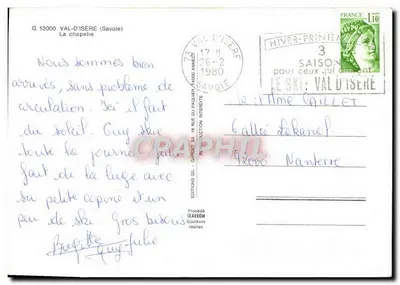 G 12000 VAL-D'ISERE (Savoie)
La chapelle
Nous sommes bien
arrivés, sans problème de
circulation. Ici il fait
du soleil. Guy skie
toute la journée,
fait de la luge avec
sa petite copine et un
peu de ski. Gros bisous
Brigitte
Guy Julie
EDITIONS GEL
REPRODUCTION INTERDITE
Procédé
Couleurs
réelles
73 VAL D'ISERE
17 H
26-2
1980
SAVOIE
HIVER-PRINTEMPS
3
SAISONS
pour ceux qui aiment
LE SKI: VAL D'ISERE
FRANCE
1,10
Mr et Mme CAILLET
92000 Nanterre
CPARAMA